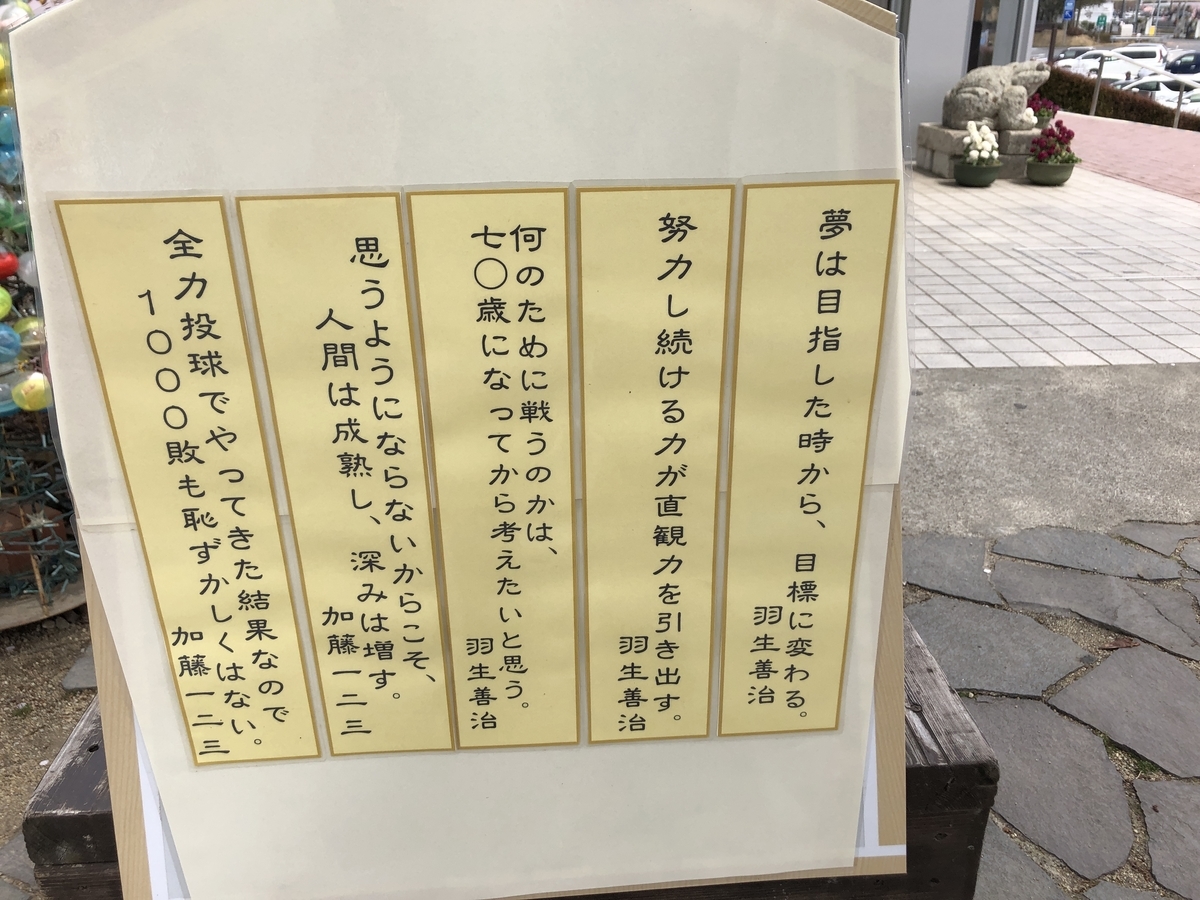 夢は目指した時から、目標に変わる。
羽生善治
努力し続ける力が直観力を引き出す。
羽生善治
何のために戦うのかは、
七〇歳になってから考えたいと思う。
羽生善治
思うようにならないからこそ、
人間は成熟し、深みは増す。
加藤一二三
全力投球でやってきた結果なので
1000敗も恥ずかしくはない。
加藤一二三